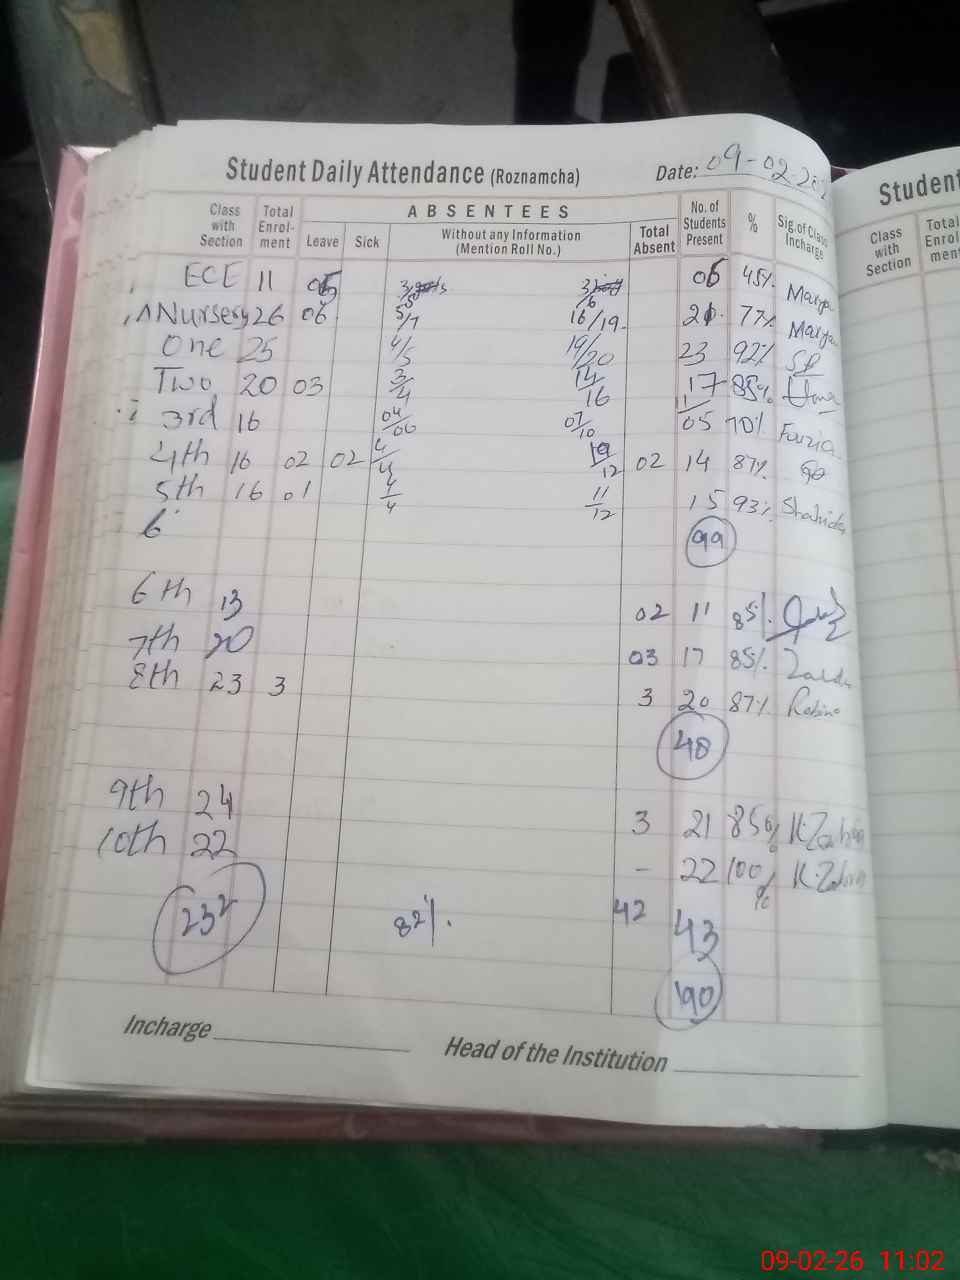 Student Daily Attendance (Roznamcha) Date: 09-02-202
Class with Section Total Enrol-ment ABSENTEES Leave Sick Without any Information (Mention Roll No.) Total Absent No. of Students Present % Sig. of Class Incharge
ECE 11 45% Marya
Nursery 26 06 5/7 16/19 77% Marya
One 25 4/5 19/20 23 92%
Two 20 03 3/4 14/16 17 85%
3rd 16 04/06 07/10 70% Fouzia
4th 16 02 02 4/4 12 02 14 87%
5th 16 01 4/4 11/12 15 93% Shahida
6
99
6th 13 02 11 85%
7th 20 03 17 85%
8th 23 3 3 20 87%
48
9th 24 3 21 85%
10th 22 - 22 100%
232 82% 42 43
190
Incharge
Head of the Institution
Student
Class with Section Total Enrol-ment
09-02-26 11:02